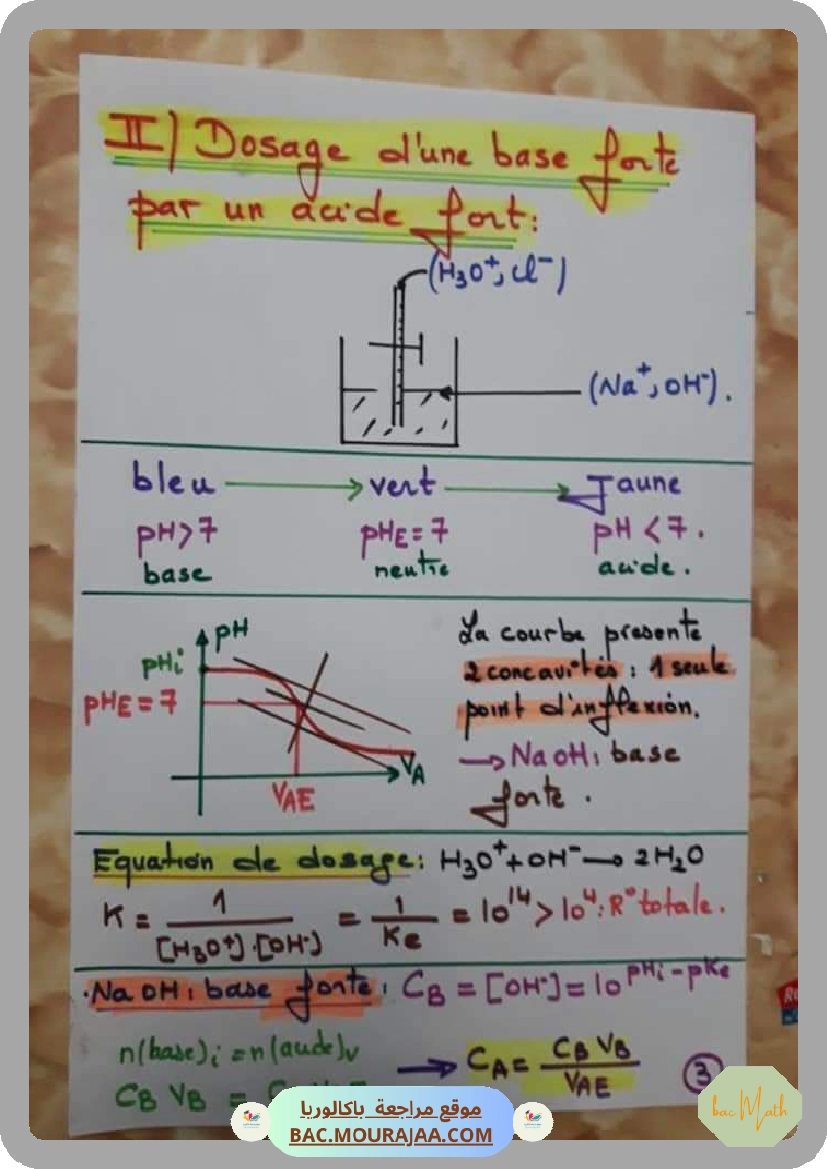 II) Dosage d'une base forte
par un acide fort:
(H₃O⁺, Cl⁻)
(Na⁺, OH⁻).
bleu → vert → Jaune
pH > 7 pHE = 7 pH < 7.
base neutre acide.
pH
pHi
pHE = 7
VA
VAE
La courbe presente
2 concavités : 1 seule
point d'inflexion.
→ NaOH: base
forte.
Equation de dosage: H₃O⁺ + OH⁻ → 2H₂O
K = 1/[H₃O⁺].[OH⁻] = 1/Ke = 10¹⁴ > 10⁴: R° totale.
. NaOH: base forte: CB = [OH⁻] = 10^pHi - pKe
n(base)i = n(acide)v
→ CA = CB VB / VAE
3
CB VB =
موقع مراجعة باكالوريا
BAC.MOURAJAA.COM
bac Math